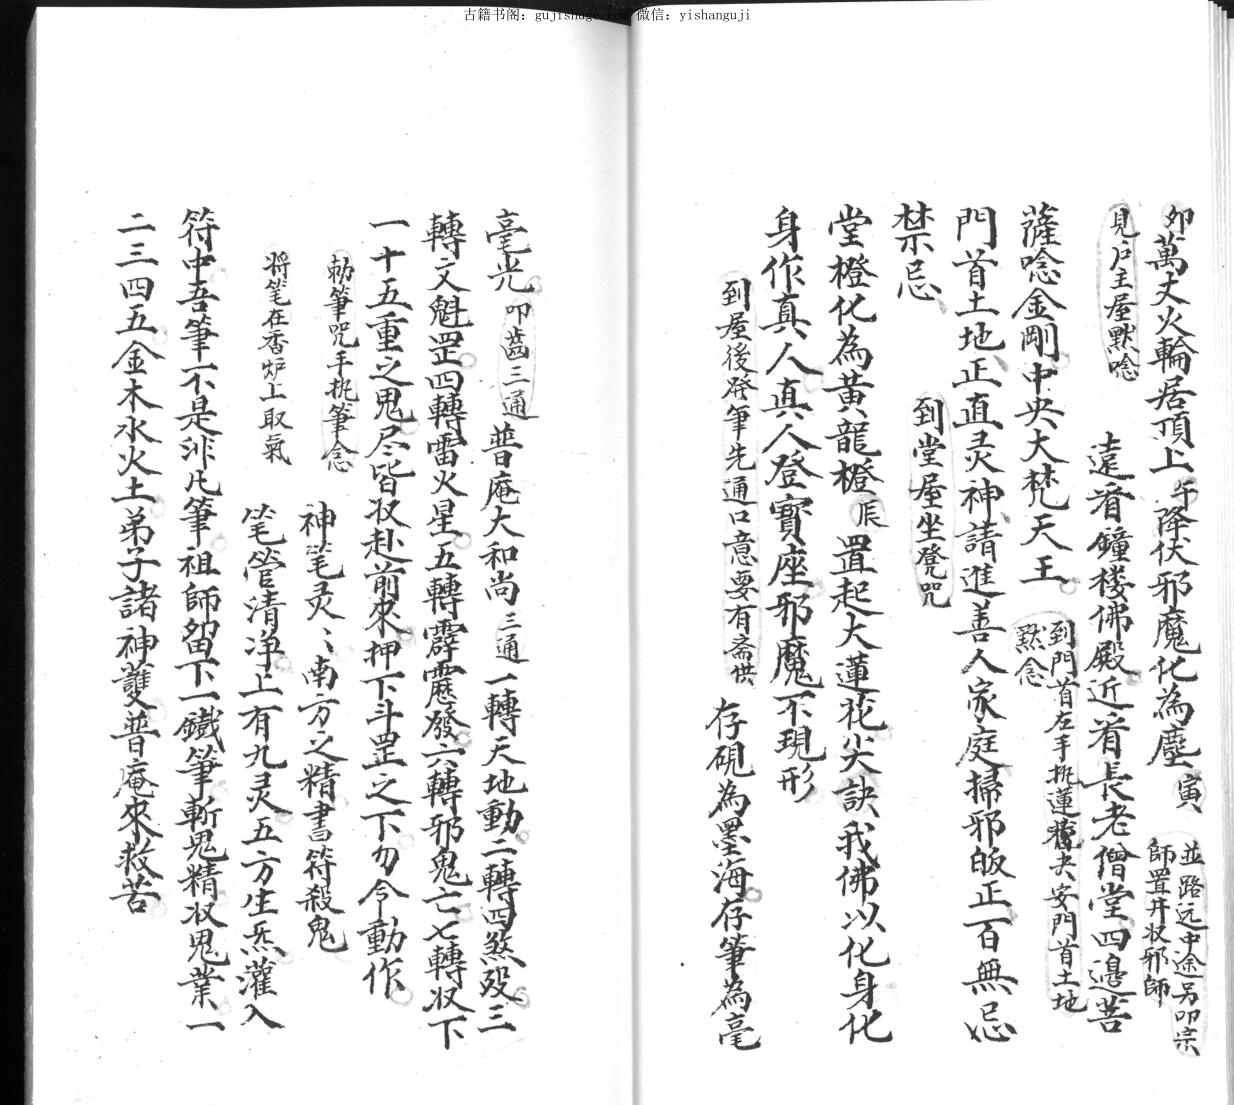 古籍书阁：gujishuge.com 微信：yishanguji
卯萬丈火輪居頂上午降伏邪魔化為塵寅
並路远中途另叩宗
師置井收邪師
見户主屋默唸
遠看鐘楼佛殿近看長老僧堂四邊菩
薩唸金剛中央大梵天王
到門首左手執蓮去安門首土地
默念
門首土地正直灵神請進善人家庭掃邪皈正一百無忌
禁忌
到堂屋坐凳咒
堂橙化為黄龍橙辰置起大蓮花尖訣我佛以化身化
身作真人真人登寳座邪魔不現形
到屋後發筆先通口意要有斋供
存硯為墨海存筆為毫
毫光叩齒三通普庵大和尚三通一轉天地動二轉四煞殁三
轉文魁罡四轉雷火星五轉霹靂發六轉邪鬼亡七轉收下
一十五重之鬼尽皆收赴前來押下斗罡之下勿令動作
勅筆咒手執筆念
神笔灵灵南方之精書符殺鬼
将笔在香炉上取氣
笔管清净上有九灵五方生炁灌入
符中吾筆不是凡筆祖師留下一鐵筆斬鬼精收鬼業一
二三四五金木水火土弟子諸神護普庵來救苦